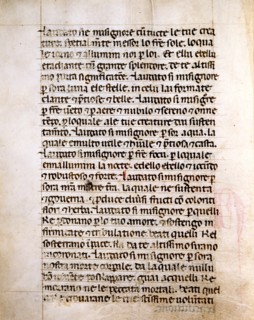 Laudato sie misignore cū tucte le tue crea
ture spetialmēte messer lo frē sole. loqua
le iorno et allumini noi p loi. Et ellu ebellu
eradiante cū grande splendore. de te altissi
mo porta significatōe. Laudato si misignore
p sora luna ele stelle. in celu lai formate
clarite et ptiose et belle. Laudato si misignore
p frē uento et p aere et nubilo et sereno et onne
tēpo. p loquale ale tue creature dai susten
tamēto. Laudato si misignore p sor aqua. la
quale emulto utile et hūile et ptiosa et casta.
Laudato si misignore p frē focu. p loquale
ennallumini la nocte. edello ebello et iocūdo
et robustoso et forte. Laudato si misignore p
sora nrā matre terra. laquale ne sustenta
et gouerna. et produce diuersi fructi cō coloriti
flori et herba. Laudato si misignore p quelli
ke pdonano p lo tuo amore. et sostengo in
firmitate et tribulatione. beati quelli ke
sosterrano ī pace. ka da te altissimo sirano
īcoronati. Laudato si misignore p sora
nostra morte corporale. da laquale nullu
hō uiuēte po skappare. guai acquelli ke
morrano ne le peccata mortali. beati quelli
ke trouarane le tue sctissime uoluntati